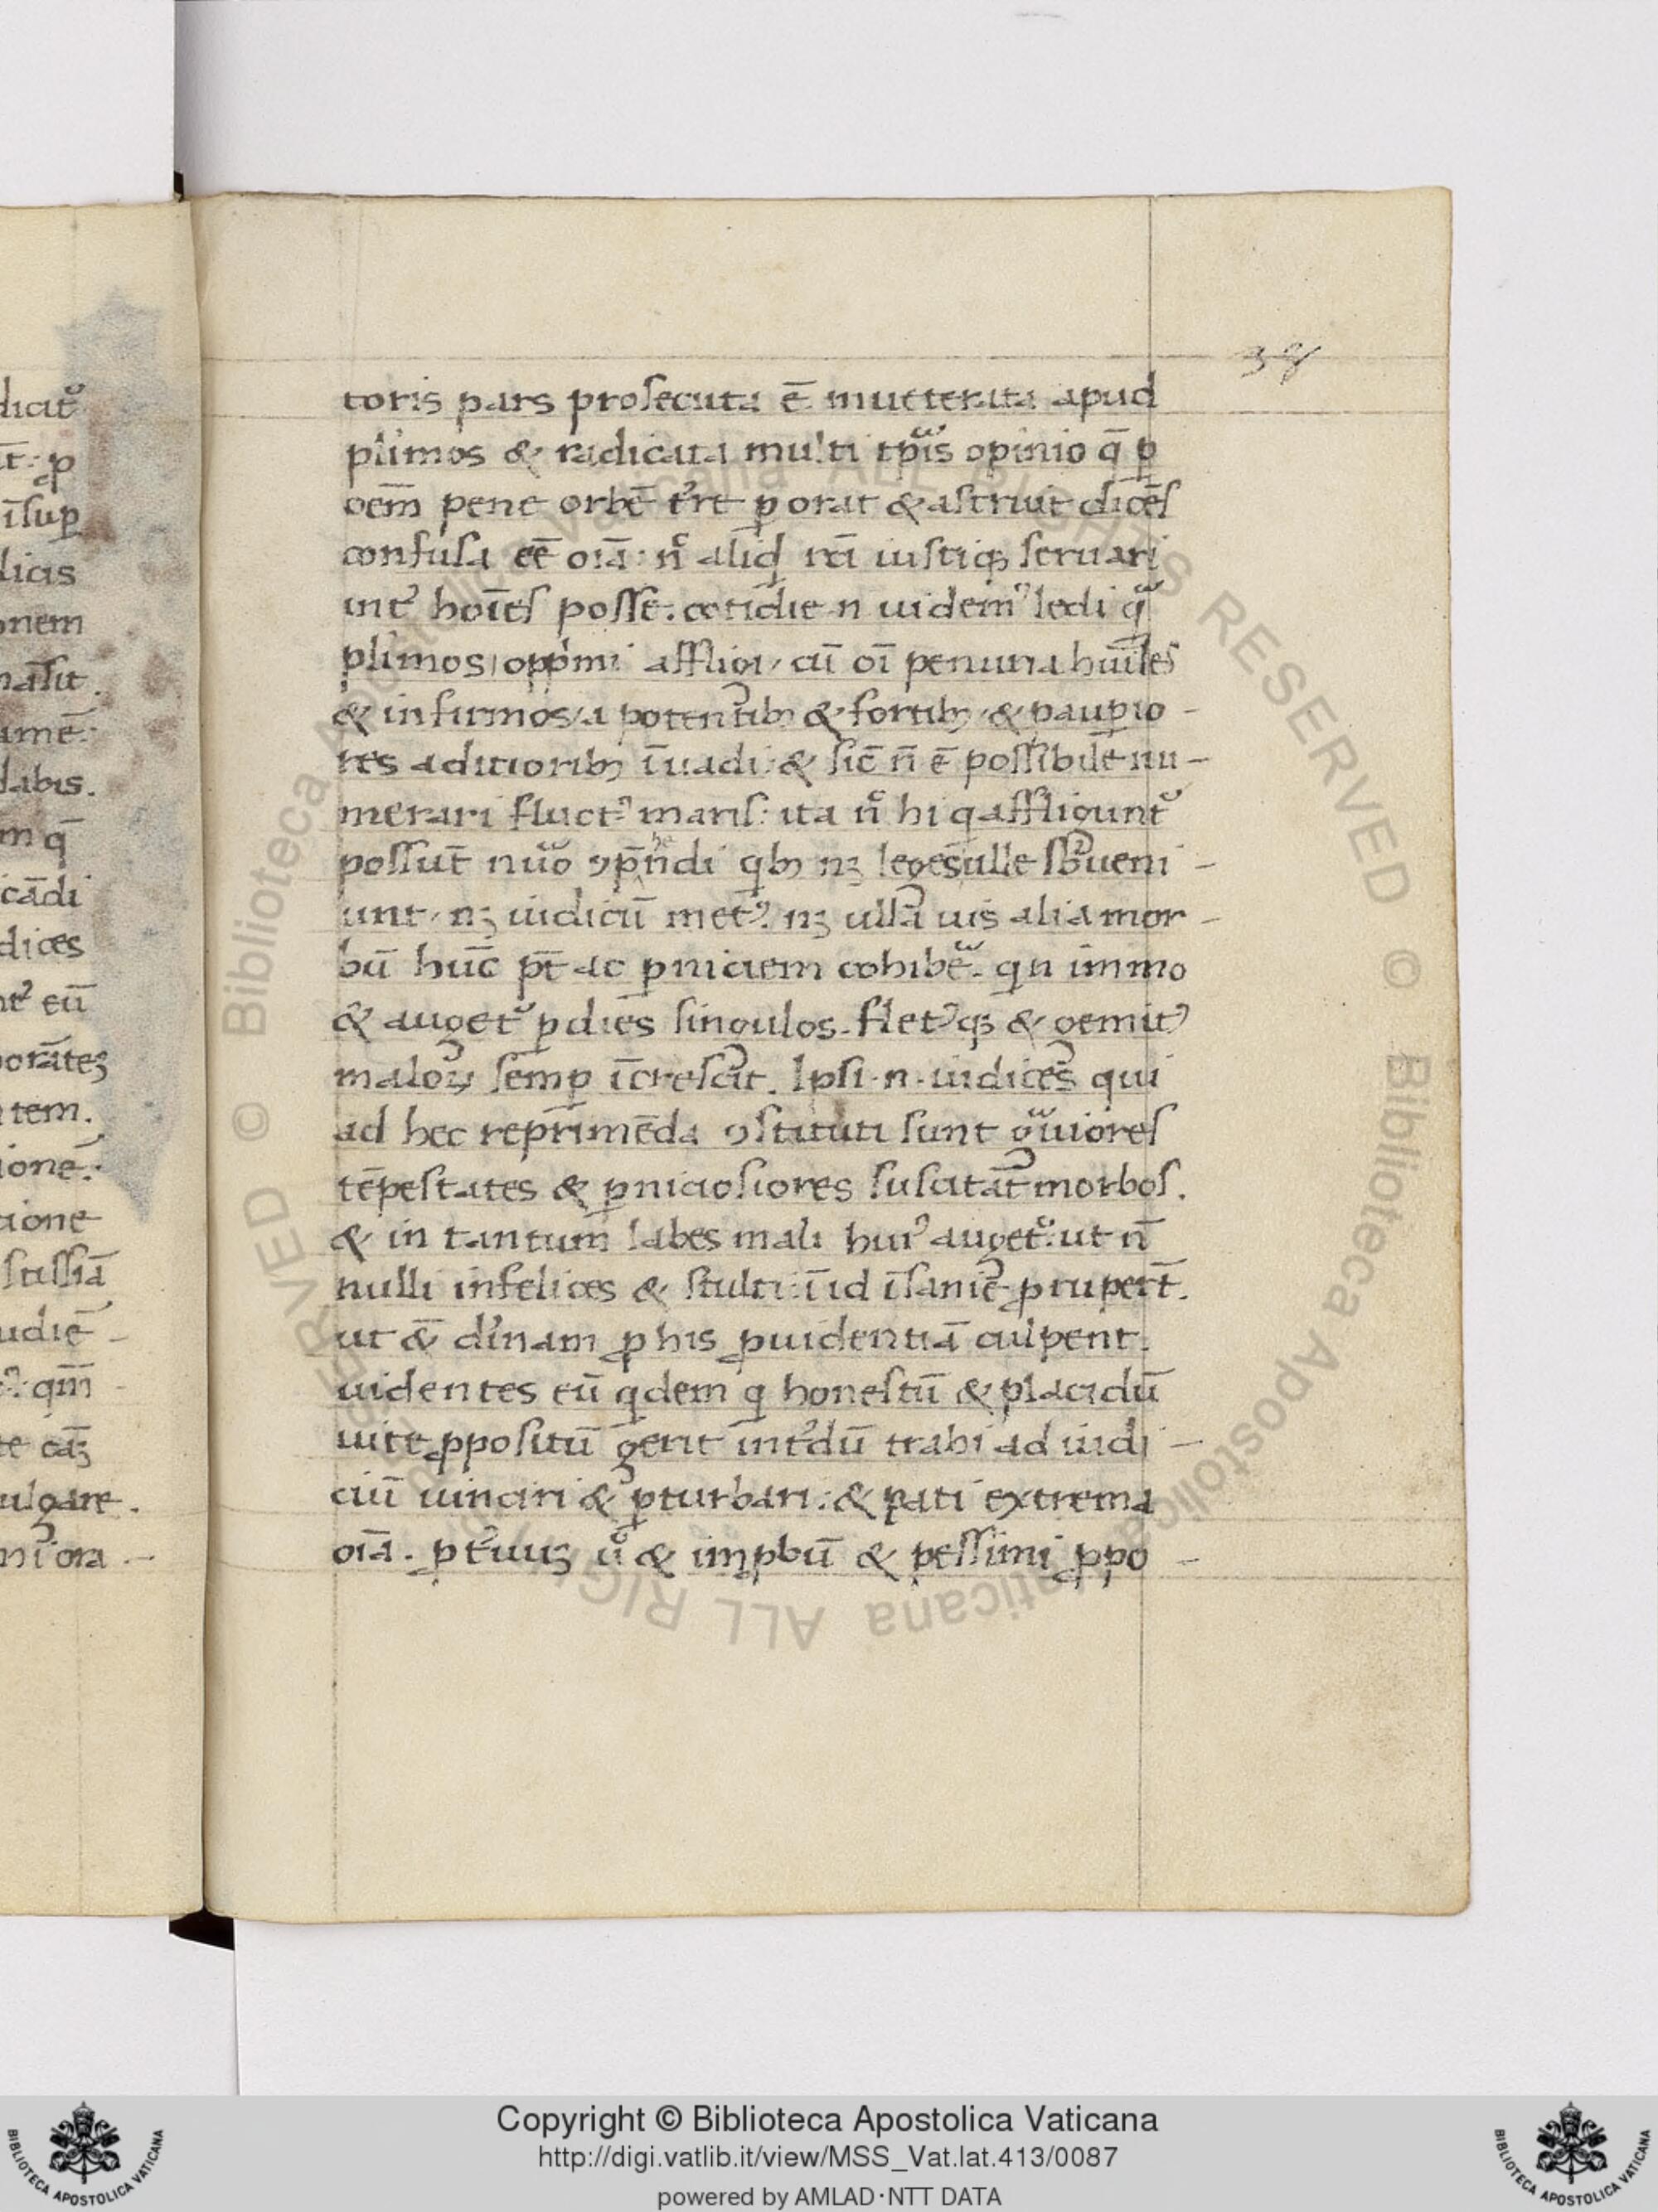 38
toris pars prosecuta ē. inueterata apud
plimos & radicata multi tp̄is opinio q̄ ꝑ
oēm pene orbē t're ꝑorat & astruit dicēs
confusa eē oīa: n̊ aliqd rc̄i iustiq; seruari
int' hoīes posse. cotidie n uidem' ledi q̄
plimos, opp'mi affligi, cū oī penuria hūiles
& infirmos, a potentib; & fortib; & pauꝑio -
res a ditiorib; īuadi. & sic̄ n̄ ē possibile nu -
merari fluct' maris: ita n̊ hi q affligunt'
possūt nūo ꝯp̄hēndi qb; nꝫ leges ulle sb'ueni -
unt, nꝫ iudicū met'. nꝫ ulla uis alia mor -
bū hūc pt̄ ac ꝑniciem cohibē. qn immo
& auget' ꝑ dies singulos. flet'q; & gemit'
maloꝝ semꝑ īcrescit. Ipsi .n. iudices qui
ad hec reprimēda ꝯstituti sunt g̃uiores
tēpestates & ꝑniciosiores suscitāt morbos.
& in tantum labes mali hui' auget': ut n̄
nulli infelices & stulti: ī id īsanie ꝓruperīt.
ut & dīnam ꝓ his ꝓuidentiā culpent.
uidentes eū qdem q honestū & placidū
uite ꝓpositū gerit int'dū trahi ad iudi -
ciū uinciri & ꝑturbari. & pati extrema
oīa. ꝓt'uuꝫ ů & imꝓbū & pessimi ꝓpo -
Copyright © Biblioteca Apostolica Vaticana
http://digi.vatlib.it/view/MSS_Vat.lat.413/0087
powered by AMLAD·NTT DATA